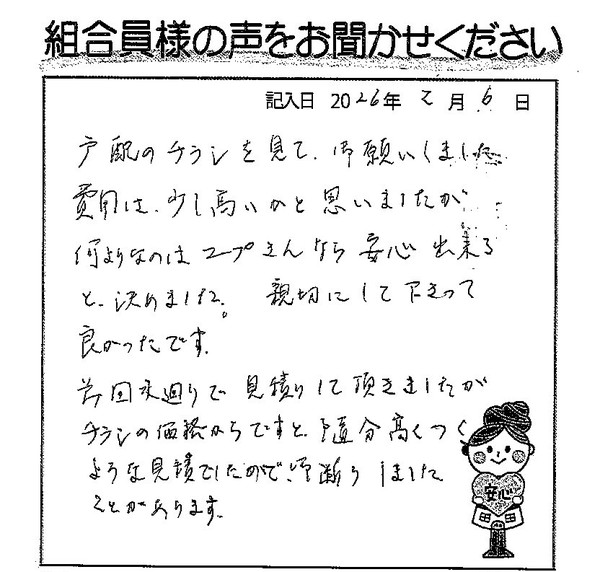 組合員様の声をお聞かせください
記入日 2026年 2月 6日
戸配のチラシを見て、御願いしました
費用は、少し高いかと思いましたが
何よりなのはコープさんなら安心出来る
と、決めました。 親切にして下さって
良かったです。
前回水廻りで見積りして頂きましたが
チラシの価格からですと、随分高くつく
ような見積でしたので、御断りしました
ことがあります。
安心